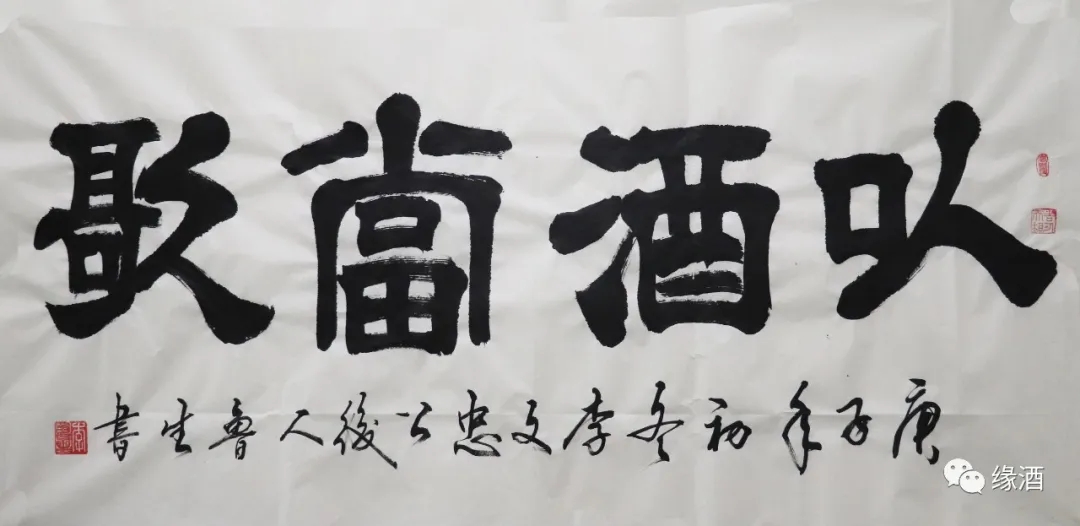 以酒當歌
庚子年初冬李文忠公後人魯生書
缘酒